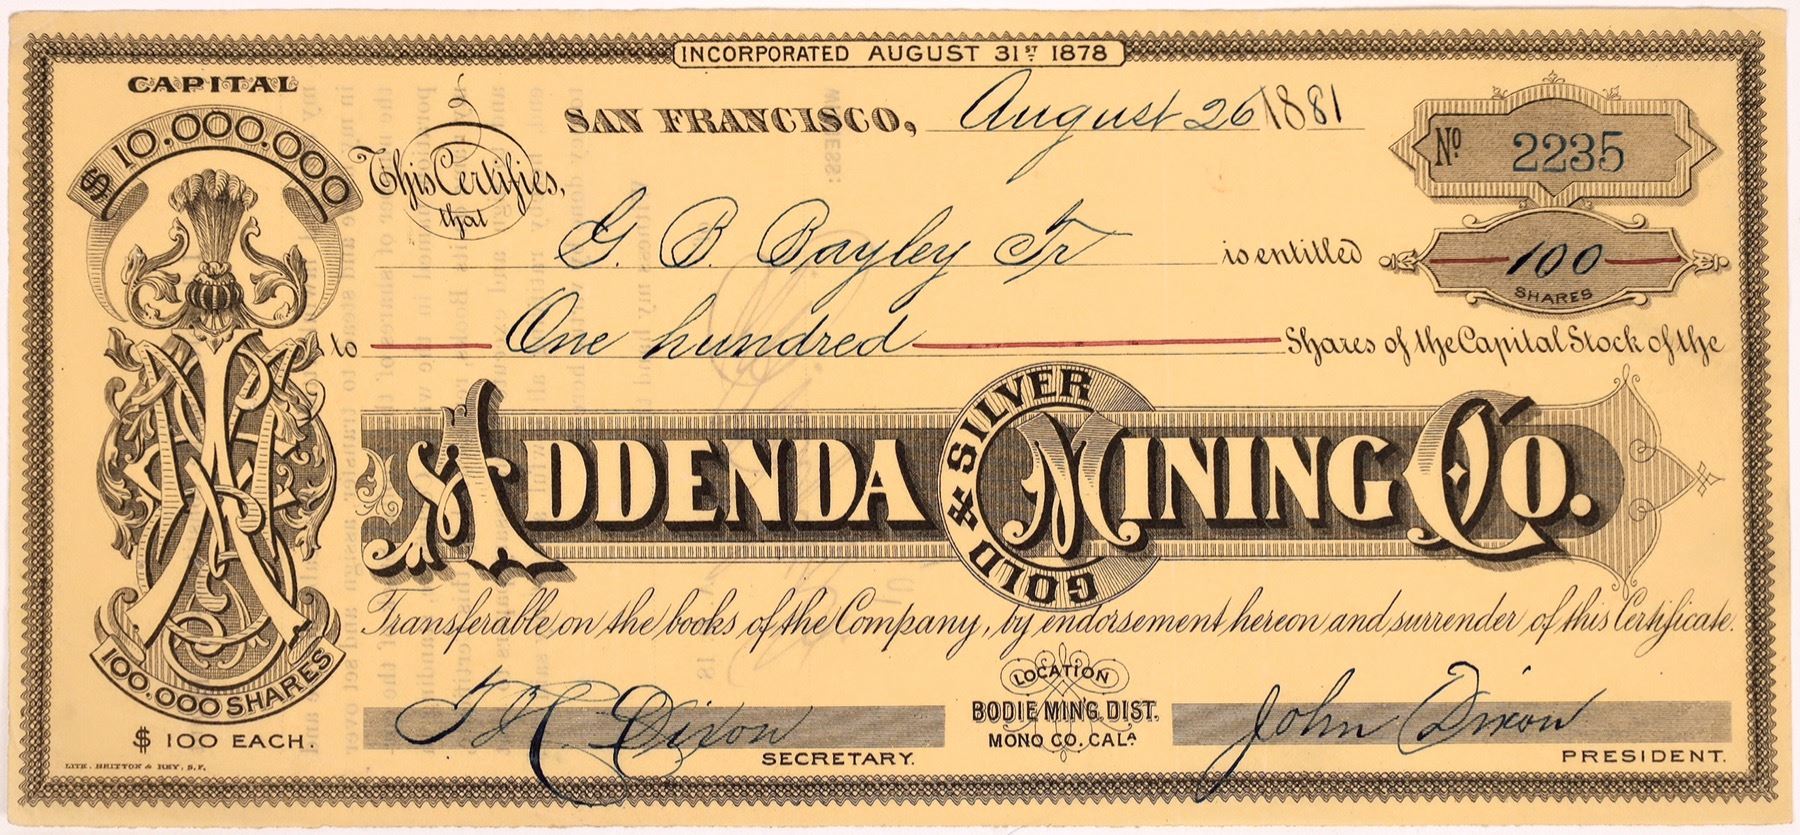 INCORPORATED AUGUST 31ST 1878
CAPITAL
$10.000.000
SAN FRANCISCO, August 26 1881
No. 2235
This Certifies,
that
G. B. Bayley Jr is entitled
100
SHARES
to One hundred Shares of the Capital Stock of the
ADDENDA GOLD & SILVER MINING CO.
Transferable on the books of the Company, by endorsement hereon and surrender of this Certificate.
100.000 SHARES
$ 100 EACH.
LOCATION
BODIE MIN'G. DIST.
MONO CO. CALA.
Dixon
SECRETARY.
John Dixon
PRESIDENT.
LITH. BRITTON & REY, S.F.